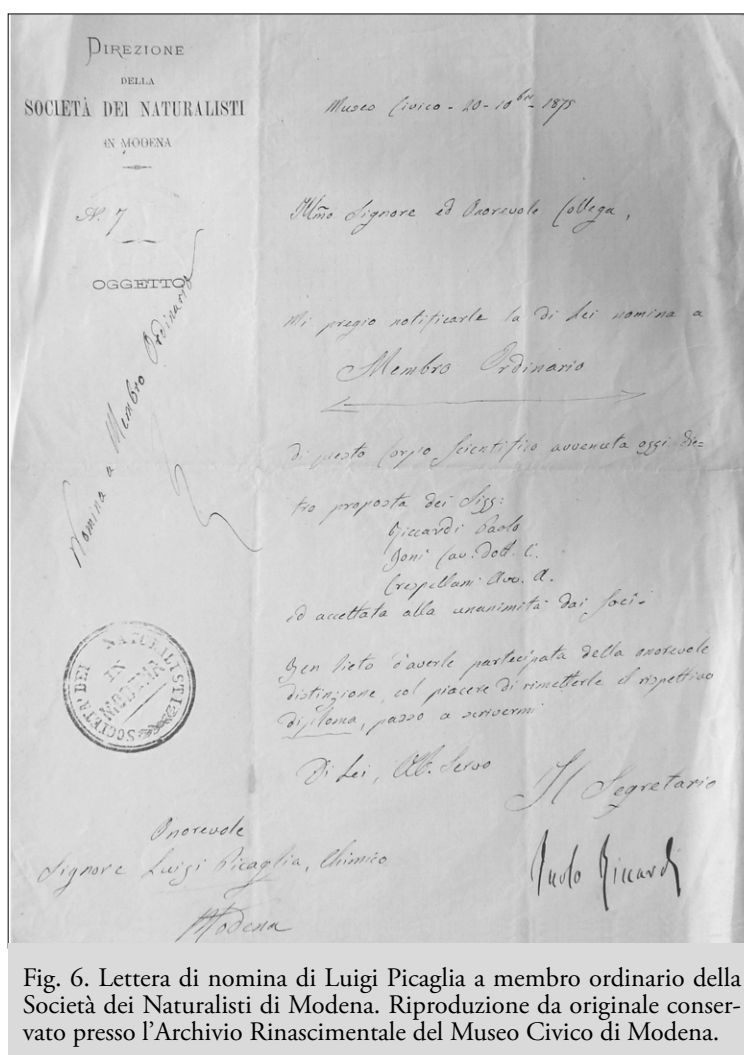 DIREZIONE
DELLA
SOCIETÀ DEI NATURALISTI
IN MODENA
Museo Civico - 20 - 10bre - 1875
N. 7
Illmo Signore ed Onorevole Collega,
OGGETTO
Nomina a Membro Ordinario
Mi pregio notificarle la di Lei nomina a
Membro Ordinario
di questo Corpo Scientifico avvenuta oggi die=
tro proposta dei Sigg:
Riccardi Paolo
Boni Cav. Dott. C.
Crespellani Avv. A.
ed accettata alla unanimità dai Soci.
Ben lieto d'averle partecipata della onorevole
distinzione, col piacere di rimetterle il rispettivo
diploma, passo a scrivermi
SOCIETA' DEI NATURALISTI
IN
MODENA
Di Lei, Obb. Servo
Il Segretario
Paolo Riccardi
Onorevole
Signore Luigi Picaglia, Chimico
Modena
Fig. 6. Lettera di nomina di Luigi Picaglia a membro ordinario della
Società dei Naturalisti di Modena. Riproduzione da originale conser-
vato presso l'Archivio Rinascimentale del Museo Civico di Modena.